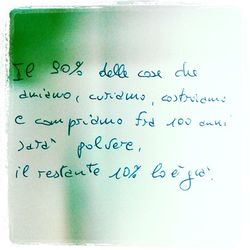 Il 90% delle cose che
amiamo, curiamo, costruiamo
e compriamo fra 100 anni
sarà polvere,
il restante 10% lo è già.